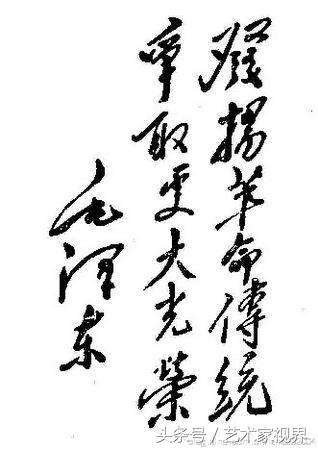 發揚革命傳統
爭取更大光榮
毛泽东
头条号/艺术家视界